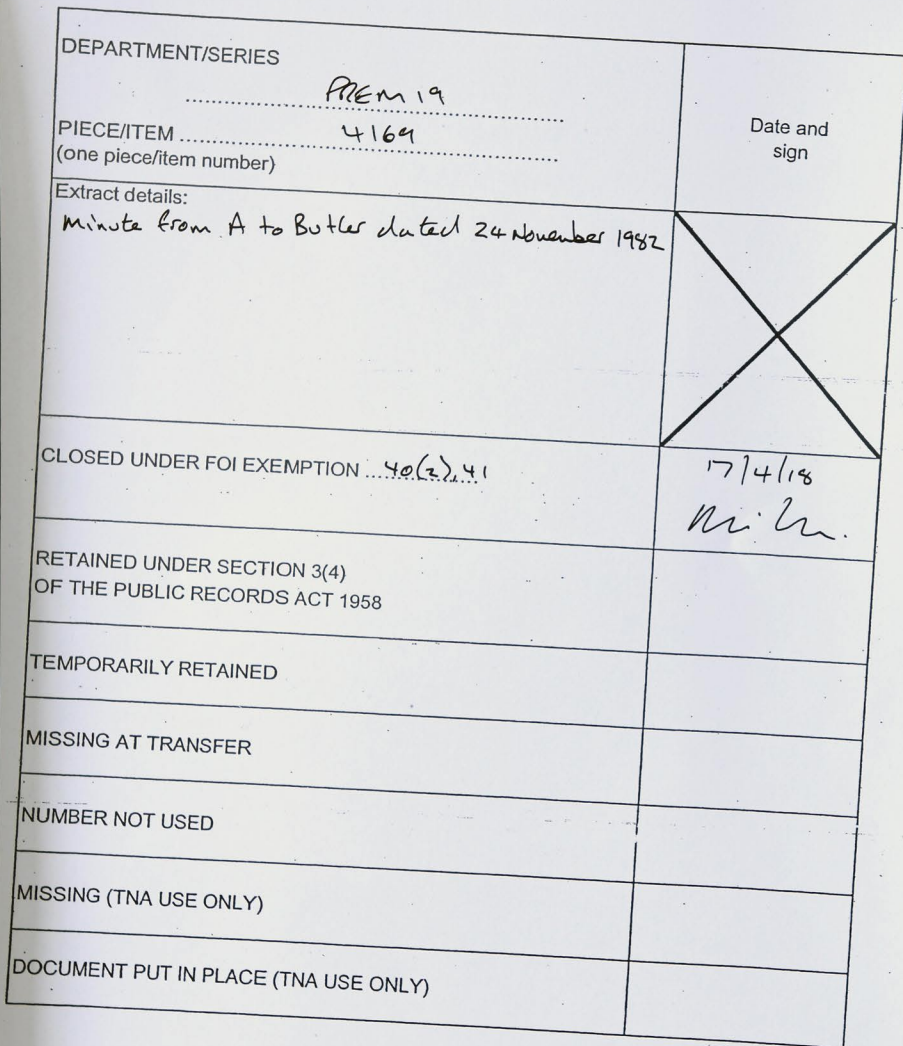 DEPARTMENT/SERIES
PREM 19
PIECE/ITEM 4169
(one piece/item number)
Date and
sign
Extract details:
Minute from A to Butler dated 24 November 1982
CLOSED UNDER FOI EXEMPTION 40(2), 41
17/4/18
RETAINED UNDER SECTION 3(4)
OF THE PUBLIC RECORDS ACT 1958
TEMPORARILY RETAINED
MISSING AT TRANSFER
NUMBER NOT USED
MISSING (TNA USE ONLY)
DOCUMENT PUT IN PLACE (TNA USE ONLY)